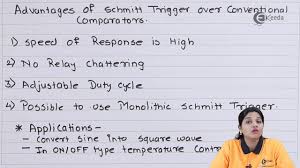 Ekeeda
Advantages of Schmitt Trigger over Conventional
Comparators.
1) Speed of Response is High
2) No Relay chattering
3) Adjustable Duty cycle
4) Possible to use Monolithic Schmitt Trigger.
* Applications -
- Convert sine into square wave
- In ON/OFF type temperature Contr